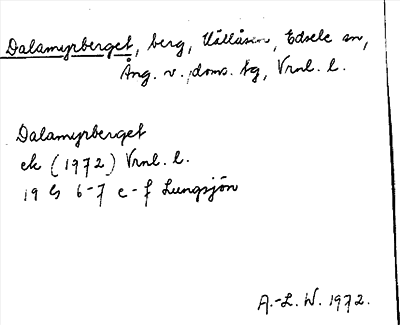 Dalamyrberget, berg, Källåsen, Edsele sn,
Ång. v. doms. tg, Vrnl. l.
Dalamyrberget
ek (1972) Vrnl. l.
19 G 6-7 e-f Lungsjön
A.-L. W. 1972.